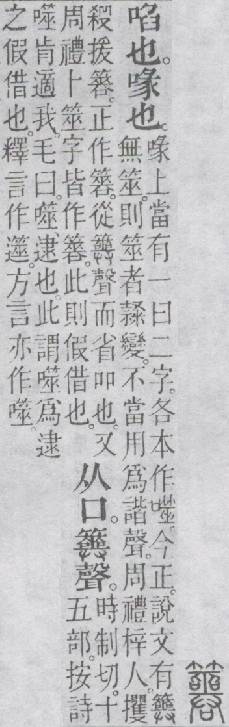 啗也。喙也。
喙上當有一曰二字。各本作噬。今正。說文有簭
無筮。則筮者隸變。不當用爲諧聲。周禮梓人攫
殺援簭。正作簭。從簭聲而省叩也。又
周禮卜筮字皆作簭。此則假借也。
从口。簭聲。
時制切。十
五部。按詩
噬肯適我。毛曰。噬、逮也。此謂噬爲逮
之假借也。釋言作遾。方言亦作噬。